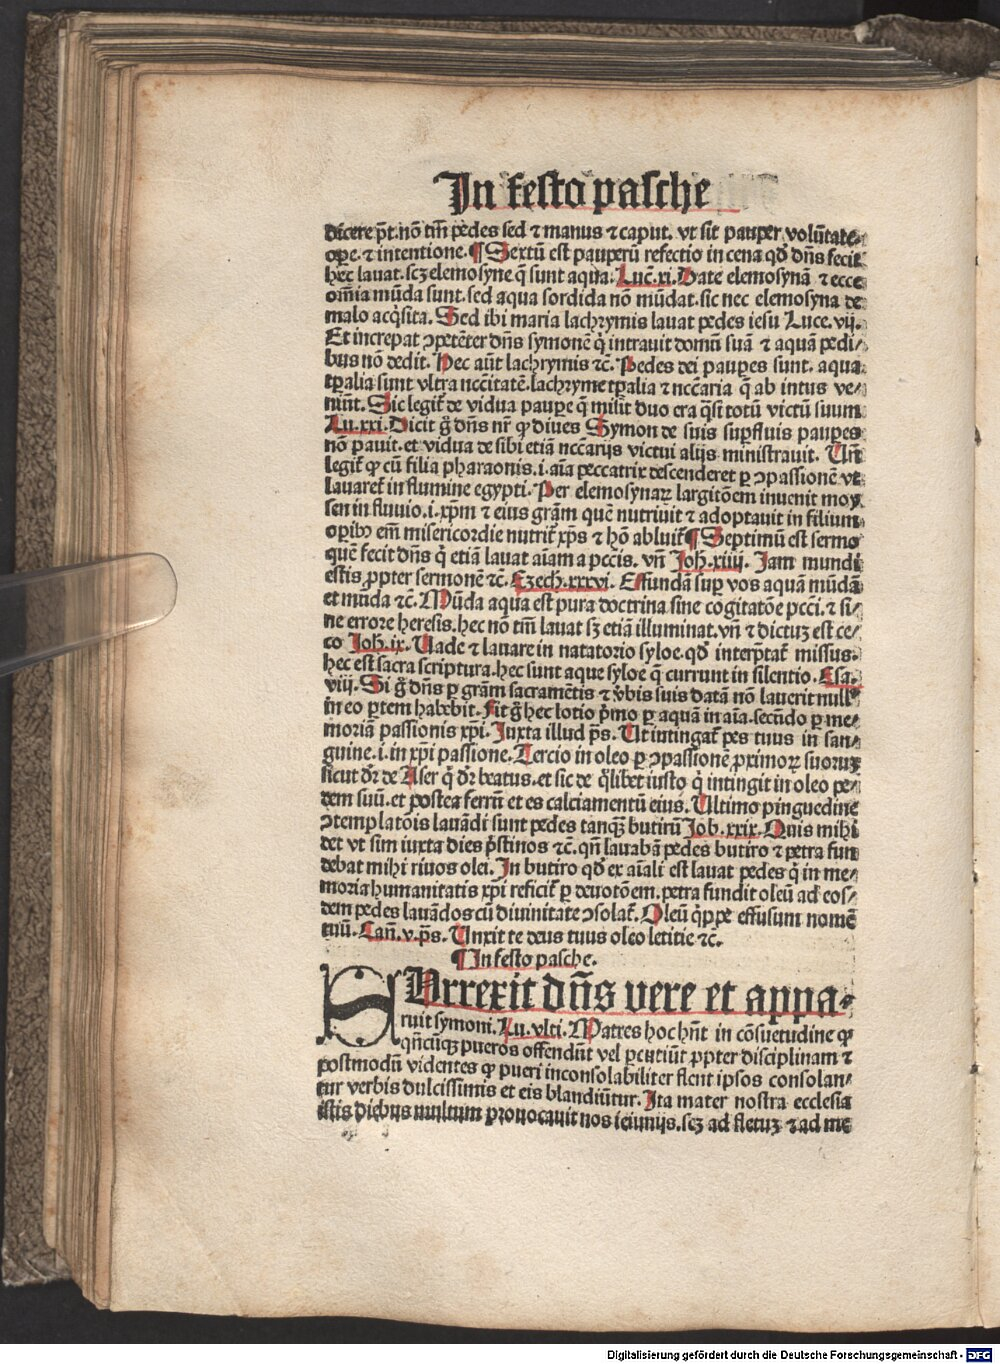 In festo pasche
dicere pt̄. nō tm̄ pedes sed ⁊ manus ⁊ caput. vt sit pauper volūtate
ope. ⁊ intentione. ¶ Sextū est pauperū refectio in cena qd̄ dn̄s fecit
hec lauat. scꝫ elemosyne q̄ sunt aqua. Luc̄. xi. Date elemosynā ⁊ ecce
om̄ia mūda sunt. sed aqua sordida nō mūdat. sic nec elemosyna de
malo acq̄sita. Sed ibi maria lachrymis lauat pedes iesu Luce. vij.
Et increpat ↄpetēter dn̄s symonē q̄ intrauit domū suā ⁊ aquā pedi⸗
bus nō dedit. Hec aūt lachrymis ⁊c̄. Pedes dei paupes sunt. aqua
tp̄alia sunt vltra nccītatē. lachryme tp̄alia ⁊ nccāria q̄ ab intus ve⸗
niūt. Sic legit̄ de vidua paupe q̄ misit duo era q̄si totū victū suum
Lu. xxi. Dicit ḡ dn̄s nr̄ ꝙ diues Symon de suis supfluis paupes
nō pauit. et vidua de sibi etiā nccārijs victui alijs ministrauit. Un̄
legit̄ ꝙ cū filia pharaonis. i. aīa peccatrix descenderet ꝑ ↄpassionē vt
lauaret̄ in flumine egypti. Per elemosynaꝝ largitōem inuenit moy
sen in fluuio. i. xp̄m ⁊ eius grām quē nutriuit ⁊ adoptauit in filium
opibꝰ em̄ misericordie nutrit̄ xp̄s ⁊ hō abluit̄ ¶ Septimū est sermo
quē fecit dn̄s q̄ etiā lauat aīam a pccīs. vn̄ Joh. xiiij. Jam mundi
estis ꝓpter sermonē ⁊c̄. Ezech. xxxvi. Effundā sup vos aquā mūdā
et mūda ⁊c̄. Mūda aqua est pura doctrina sine cogitatōe pccī. ⁊ si⸗
ne errore heresis. hec nō tm̄ lauat sꝫ etiā illuminat. vn̄ ⁊ dictuꝫ est ce⸗
co Joh. ix. Uade ⁊ lauare in natatorio syloe. qd̄ interptat̄ missus.
hec est sacra scriptura. hec sunt aque syloe q̄ currunt in silentio. Esa.
viij. Si ḡ dn̄s ꝑ grām sacramētis ⁊ v̄bis suis datā nō lauerit nullꝰ
in eo ptem habebit. Fit ḡ hec lotio pͥmo ꝑ aquā in aīa. secūdo ꝑ me⸗
moriā passionis xp̄i. Juxta illud ps̄. Ut intingat̄ pes tuus in san⸗
guine. i. in xp̄i passione. Tercio in oleo ꝑ ↄpassionē ꝓximoꝝ suoruꝫ
sicut dr̄ de Aser q̄ dr̄ beatus. et sic de q̄libet iusto q̄ intingit in oleo pe⸗
dem suū. et postea ferrū et es calciamentū eius. Ultimo pinguedine
ↄtemplatōis lauādi sunt pedes tanqꝫ butirū Job. xxix. Quis mihi
det vt sim iuxta dies pͥstinos ⁊c̄. qn̄ lauabā pedes butiro ⁊ petra fun
debat mihi riuos olei. In butiro qd̄ ex aīali est lauat pedes q̄ in me⸗
moria humanitatis xp̄i reficit̄ ꝑ deuotōem. petra fundit oleū ad eos⸗
dem pedes lauādos cū diuinitate ↄsolat̄. Oleū q̄ppe effusum nomē
tuū. Can̄. v. ps̄. Unxit te deus tuus oleo letitie ⁊c̄.
¶ In festo pasche.
SUrrexit dn̄s vere et appa⸗
ruit symoni. Lu. vlti. Matres hoc hn̄t in cōsuetudine ꝙ
qn̄cūqꝫ pueros offendūt vel pcutiūt ꝓpter disciplinam ⁊
postmodū videntes ꝙ pueri inconsolabiliter flent ipsos consolan⸗
tur verbis dulcissimis et eis blandiūtur. Ita mater nostra ecclesia
istis diebus multum prouocauit nos ieiunijs. scꝫ ad fletuꝫ ⁊ ad me
Digitalisierung gefördert durch die Deutsche Forschungsgemeinschaft - DFG